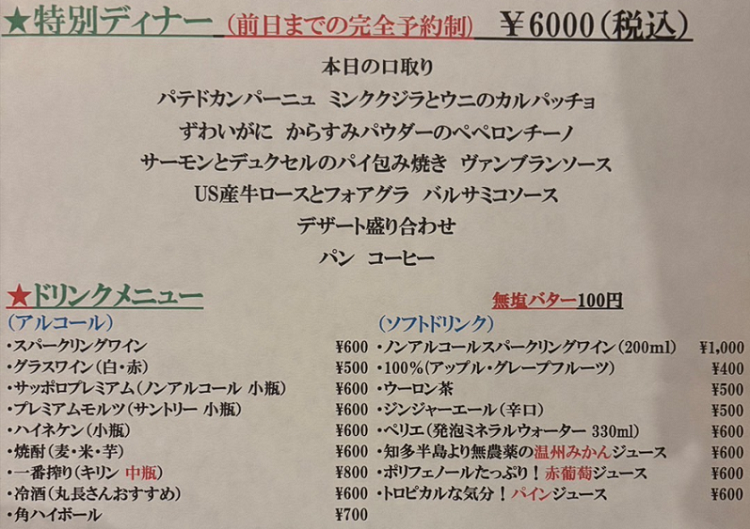 ★特別ディナー（前日までの完全予約制） ￥6000（税込）
本日の口取り
パテドカンパーニュ ミンククジラとウニのカルパッチョ
ずわいがに からすみパウダーのペペロンチーノ
サーモンとデュクセルのパイ包み焼き ヴァンブランソース
US産牛ロースとフォアグラ バルサミコソース
デザート盛り合わせ
パン コーヒー
★ドリンクメニュー
（アルコール）
・スパークリングワイン ¥600
・グラスワイン（白・赤） ¥500
・サッポロプレミアム（ノンアルコール 小瓶） ¥600
・プレミアムモルツ（サントリー 小瓶） ¥600
・ハイネケン（小瓶） ¥600
・焼酎（麦・米・芋） ¥600
・一番搾り（キリン 中瓶） ¥800
・冷酒（丸長さんおすすめ） ¥600
・角ハイボール ¥700
無塩バター100円
（ソフトドリンク）
・ノンアルコールスパークリングワイン（200ml） ¥1,000
・100%（アップル・グレープフルーツ） ¥400
・ウーロン茶 ¥500
・ジンジャーエール（辛口） ¥500
・ペリエ（発泡ミネラルウォーター 330ml） ¥600
・知多半島より無農薬の温州みかんジュース ¥600
・ポリフェノールたっぷり！赤葡萄ジュース ¥600
・トロピカルな気分！パインジュース ¥600